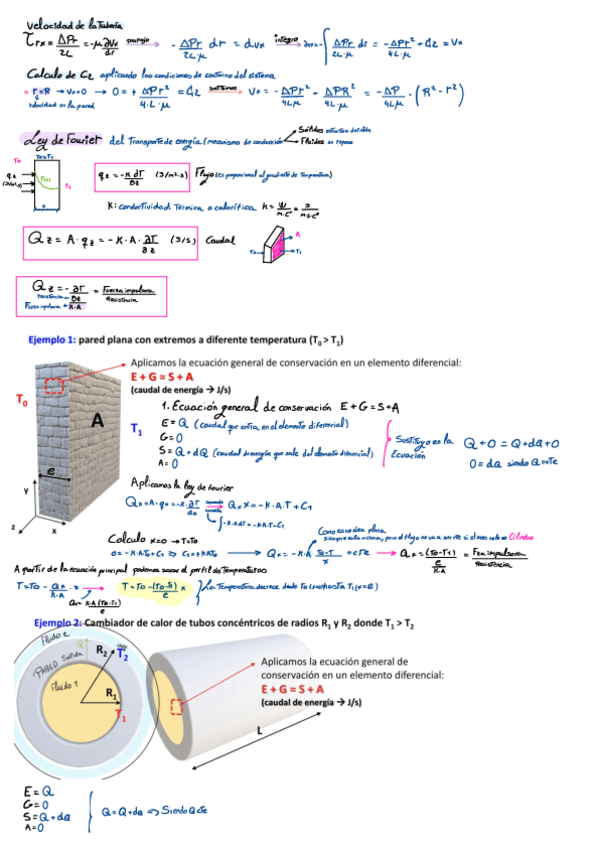 Velocidad de la tubería
τrx = ΔPr/2L = -μ ∂vx/dr → - ΔPr/2L·μ dr = dvx integro → ΔPr/2L·μ dr = -ΔPr²/4L·μ + C2 = Vx
Calculo de C2 aplicando las condiciones de contorno del sistema
r=R → Vx=0 → 0 = + ΔPr²/4·L·μ = C2 → Vx = -ΔPr²/4Lμ + ΔPR²/4L·μ = -ΔP/4Lμ · (R² - r²)
velocidad en la pared
Ley de Fourier del Transporte de energía (mecanismo de conducción
Sólidos
Fluidos en reposo
T0
T0>T1
qz
(J/m²·s)
T1
qz = -K ∂T/∂z (J/m²·s) Flujo (es proporcional al gradiente de Temperatura)
K: conductividad térmica o calorífica K = W/m·C° = J/m·s·C°
Qz = A·qz = -K·A· ∂T/∂z (J/s) Caudal
A
T0
T1
Qz = - ∂T/∂z = Fuerza impulsora/Resistencia
Resistencia
Fuerza impulsora K·A
Ejemplo 1: pared plana con extremos a diferente temperatura (T0 > T1)
Aplicamos la ecuación general de conservación en un elemento diferencial:
E + G = S + A
(caudal de energía → J/s)
T0
A
T1
e
y
z
x
1. Ecuación general de conservación E+G=S+A
E=Q (caudal que entra en el elemento diferencial)
G=0
S=Q+dQ (caudal de energía que sale del elemento diferencial)
A=0
Sustituyo en la Ecuación
Q+0=Q+dQ+0
0=dQ siendo Q=cte
Aplicamos la ley de fourier
Qx=A·qx=-K ∂T/dx → Qx·x=-K·A·T+C1
∫-K·A·dT=-K·A·T+C1
Calculo x=0 → T=T0
0=-K·A·T0+C1 => C1=+KAT0 → Qx=-K·A T0-T/x = cte → Qx=(T0-T1)/(e/K·A) = Fza impulsora/Resistencia
A partir de la ecuación principal podemos sacar el perfil de Temperaturas
T=T0 - Qx/K·A · x → T=T0-(T0-T1)/e x } La temperatura decrece desde T0 hasta T1 (x=e)
Qx=K·A(T0-T1)/e
Ejemplo 2: Cambiador de calor de tubos concéntricos de radios R1 y R2 donde T1 > T2
Fluido 2
PARED Sólida
Fluido 1
R2
T2
R1
T1
L
Aplicamos la ecuación general de
conservación en un elemento diferencial:
E + G = S + A
(caudal de energía → J/s)
E=Q
G=0
S=Q+dQ
A=0
Q=Q+dQ => Siendo Q cte